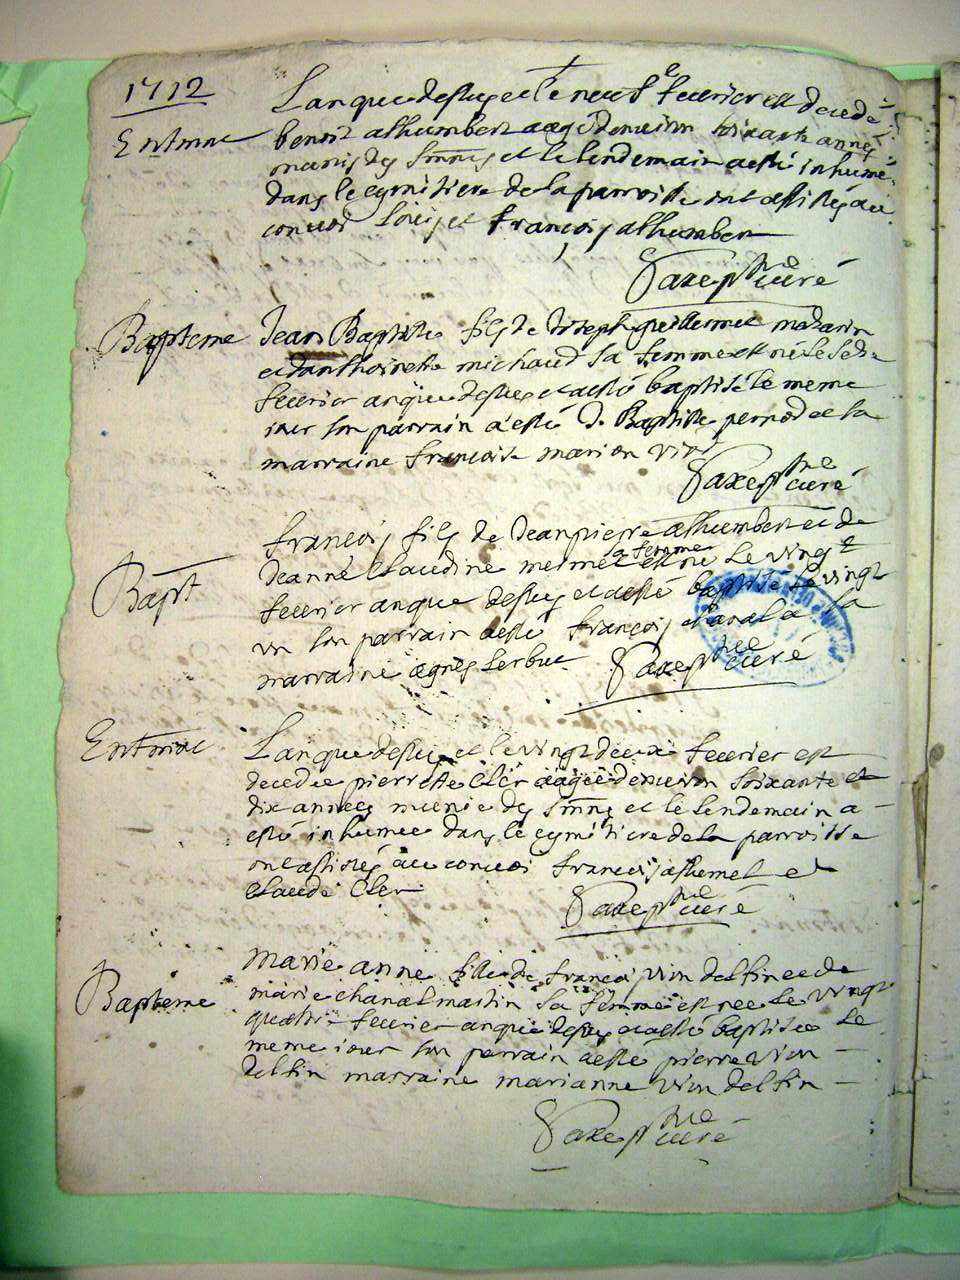 1712
Lan que dessus et le neuf fevrier est decedé
Enterrement benoit alhumbert aagé denviron soixante années
munis des Smns et le lendemain a esté inhumé
dans le cymitiere de la parroisse ont assistés au
convoi Louis et françois alhumbert
curé
Bapteme Jean Baptiste fils de Joseph guillermet mazarin
et danthoinette michaud sa femme est né le
fevrier an que dessus et a esté baptisé le meme
iour son parrain a esté J. Baptiste pernod et la
marraine francoise marion vion
curé
françois fils de Jean pierre alhumbert et de
Bapt Jeanne Claudine mermet sa femme est né le vingt
fevrier an que dessus et a esté baptisé le vingt
un son parrain a esté françois chanal et la
marraine agnes
curé
Lan que dessus et le vingt deux fevrier est
decedée pierrette Cler aagée denviron soixante et
dix années munie des Smns et le lendemain a
esté inhumée dans le cymitiere de la parroisse
ont assistés au convoi françois et
Claude Cler
curé
Marie anne fille de françois vion delfin et de
Bapteme marie chanal martin sa femme est née le vingt
quatre fevrier an que dessus et a esté baptisée le
meme iour son parrain a esté pierre vion
delfin marraine marianne vion delfin
curé